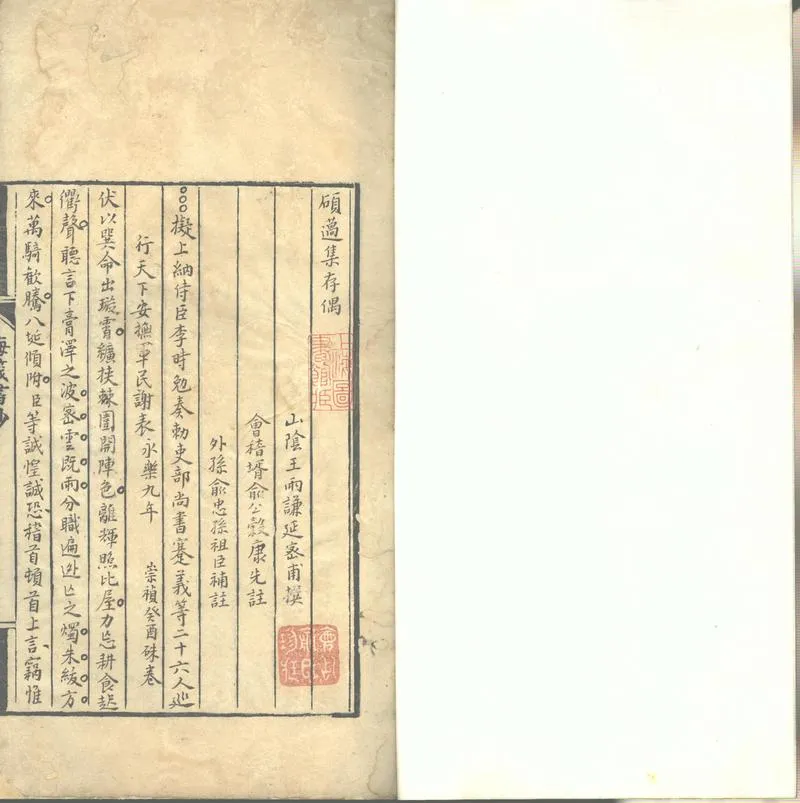 碩薖集存偶
山陰王雨謙延密甫撰
會稽壻俞公穀康先註
外孫俞忠孫祖臣補註
擬上納侍臣李時勉奏勅吏部尚書蹇義等二十六人廵
行天下安撫軍民謝表永樂九年 崇禎癸酉硃卷
伏以巽命出璇霄纊扶棘圍開陣色離輝照比屋力忘耕食起
衢聲聽言下膏澤之波密雲既雨分職遍迯亡之燭朱紱方
來萬騎歡騰八埏傾附臣等誠惶誠恐稽首頓首上言竊惟